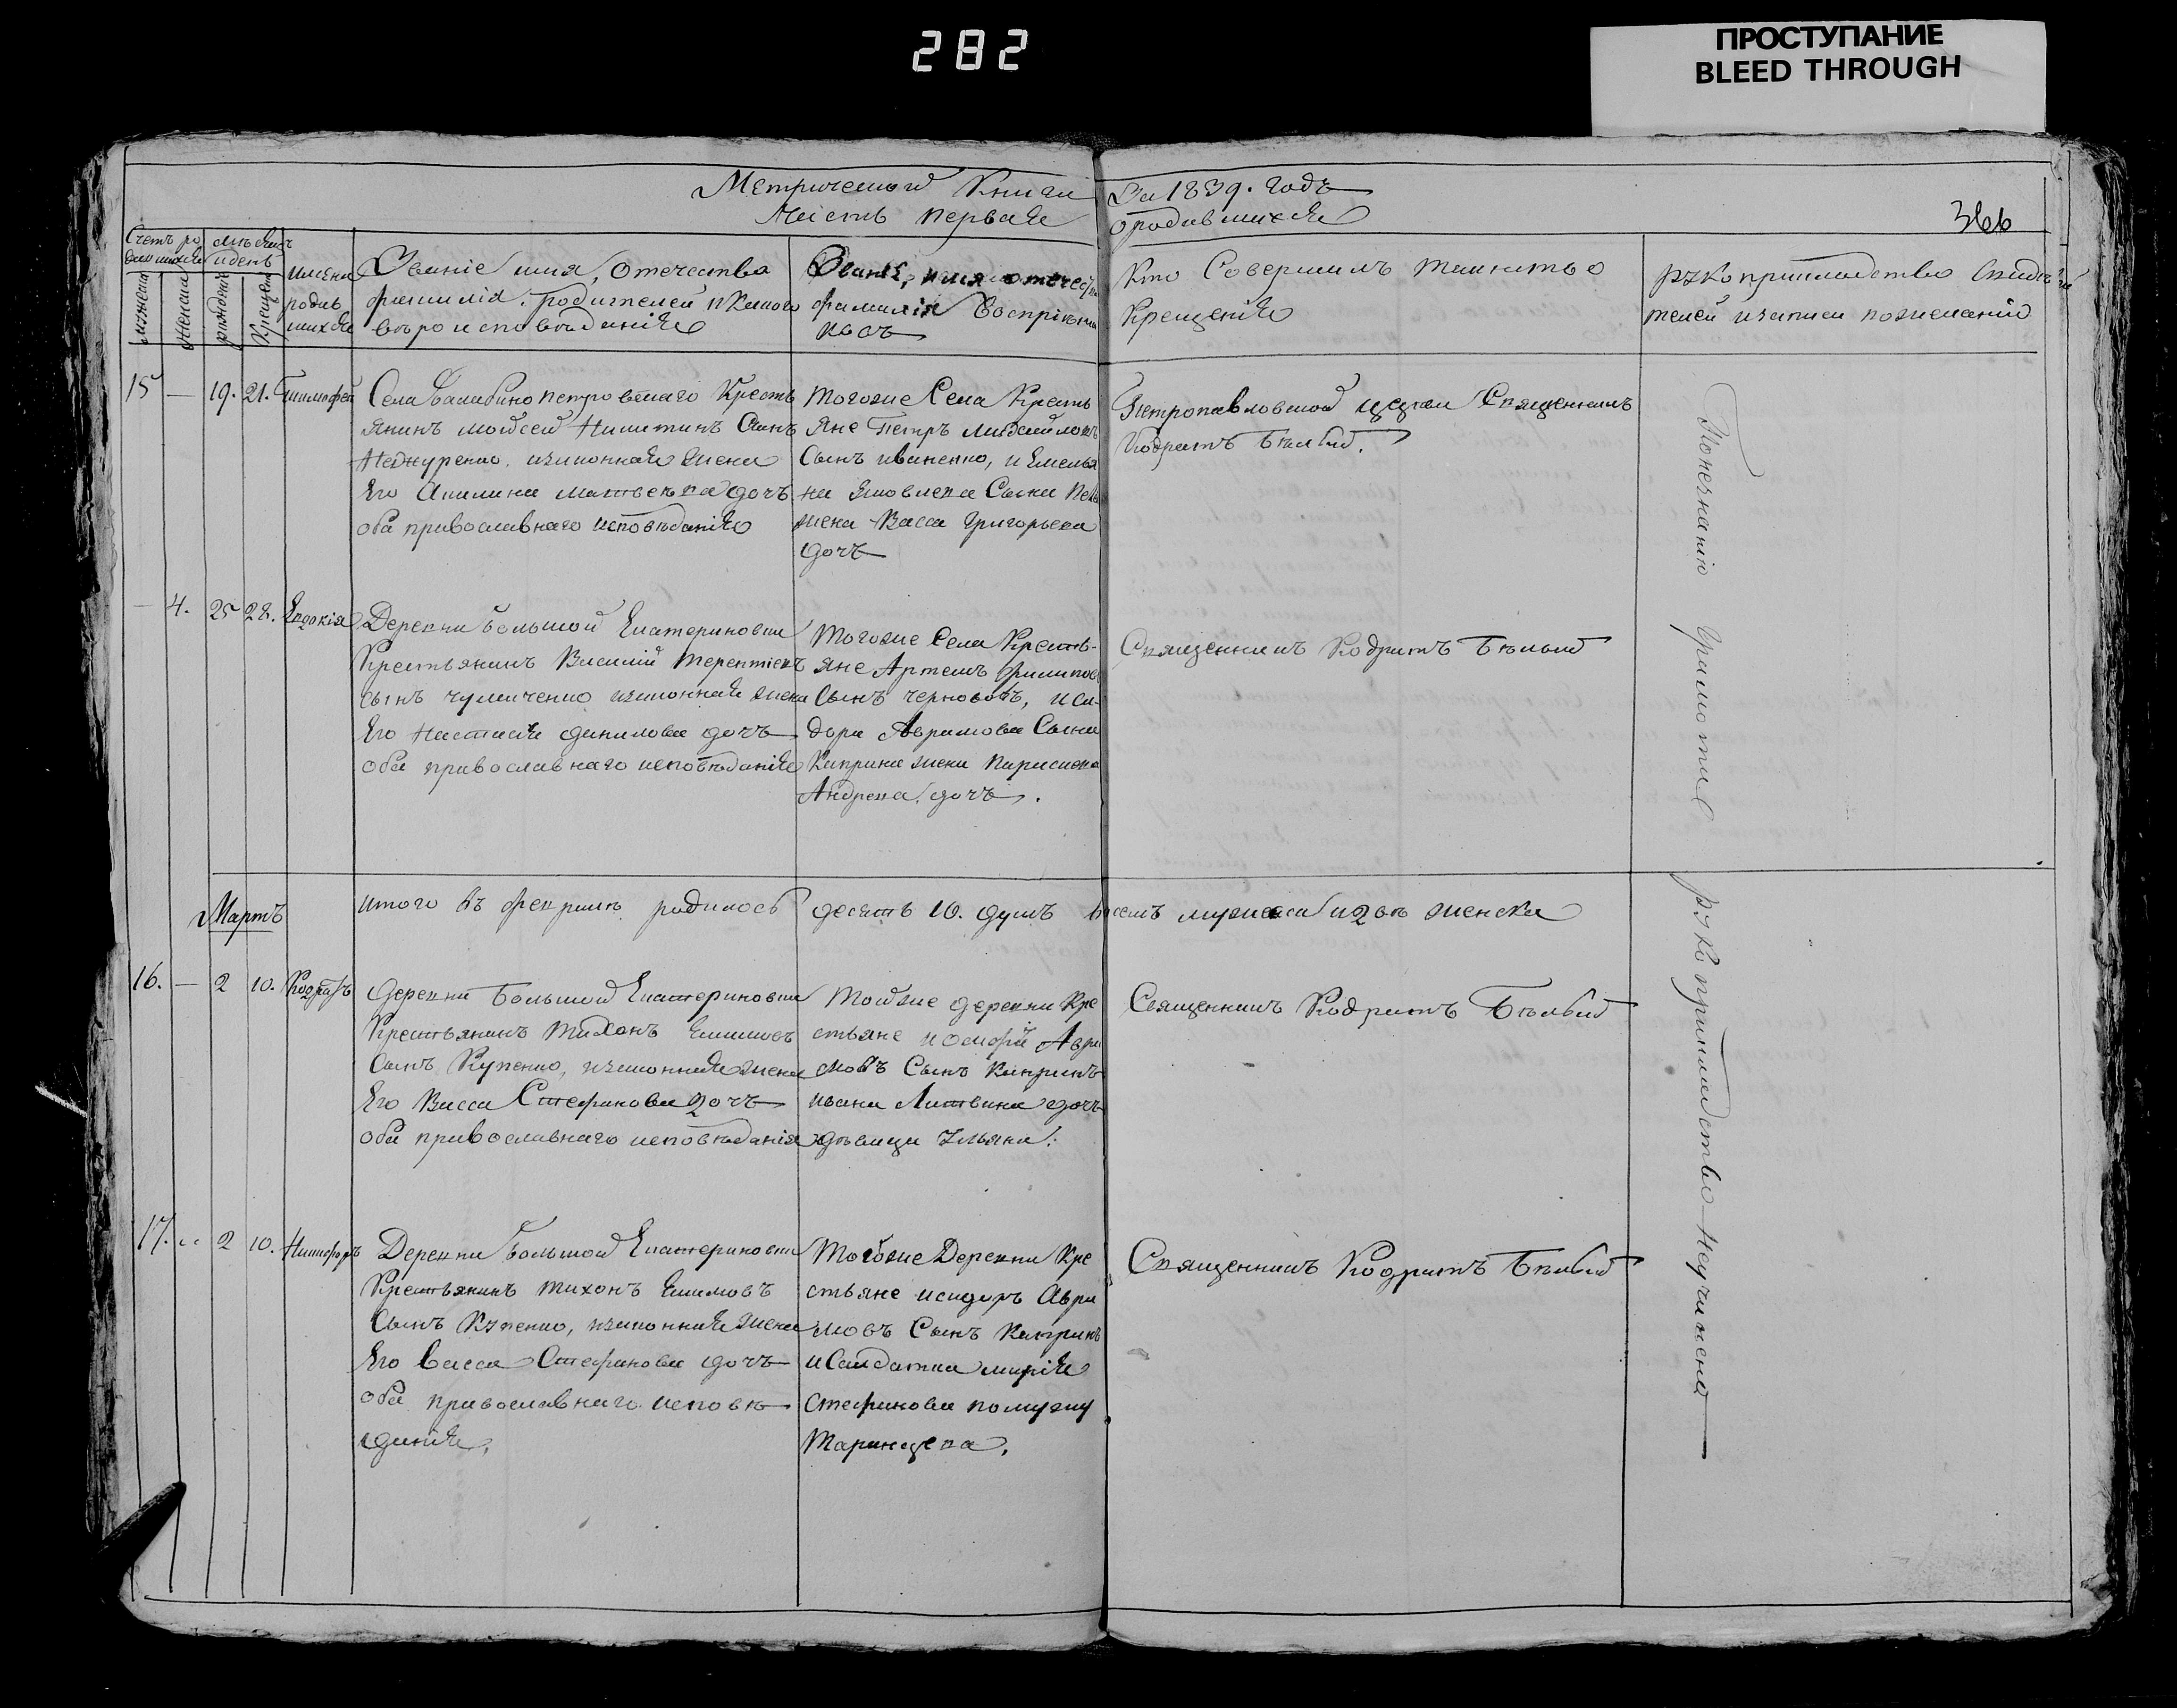 282
ПРОСТУПАНИЕ
BLEED THROUGH
Метрической Книги За 1839. годъ
Часть первая о родившихся
366
Счетъ ро
дившихся
мѣсяцъ
и день
мужеска
женска
рожденія
Крещенія
имена
родив
шихся
Званіе имя, отечество
фамилія родителей и Какого
вѣроисповѣданія
Званіе, имя отечество
фамилія Воспріемни
ковъ
Кто Совершилъ таинство
Крещенія
рукоприкладство Свидѣ
телей записи по желанію
15 — 19. 21. Тимофей
Села Балабино петровскаго Кресть
янинъ моисей Никитинъ Сынъ
изаконная жена
Его Акилина матвеева дочь
оба православнаго исповѣданія
Тогоже Села Кресть
яне Петръ Сынъ иваненко, и Емелья
на Яковлева Сына
жена Васса Григорьева
дочь
Петропавловской церкви Священникъ
Кодратъ Бѣлый.
— 4. 25 28. Евдокія
Деревни большой Екатериновки
Крестьянинъ Василій терентіевъ
сынъ чумаченко изаконная жена
Его Настасія данилова дочь
оба православнаго исповѣданія
Тогоже Села Кресть-
яне Артемъ филипов
Сынъ черноволъ, и Си-
дора Аврамова Сына
Каприна жена Параскева
Андреева дочь.
Священникъ Кодратъ Бѣлый
итого въ февралѣ родилось десять 10. душъ восемъ мужеска и 2вѣ женска
Мартъ
16. — 2 10. Кодратъ
деревни Большой Екатериновки
Крестьянинъ Тихонъ Екимовъ
Сынъ Купенко, изаконная жена
Его Васса Стефанова дочь
оба православнаго исповѣданія
Тойже деревни Кре
стьяне иосифъ Авра
мовъ Сынъ Капринъ
ивана Литвина дочь
дѣвица Ульяна.
Священникъ Кодратъ Бѣлый
17. „ 2 10. Никифоръ
Деревни большой Екатериновки
Крестьянинъ тихонъ Екимовъ
Сынъ Купенко, изаконная жена
Его Васса Стефанова дочь
оба православнаго исповѣ
данія,
Тойже Деревни Кре
стьяне исидоръ Авра
мовъ Сынъ Капринъ
и Салдатка марія
Стефанова помужу
Таранцева,
Священникъ Кодратъ Бѣлый
Понезнанію Грамоты
рукоприкладство неучинено